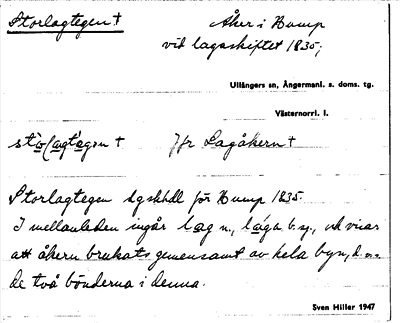 Storlagtegen † Åker i Hump
vid lagaskiftet 1835;
Ullångers sn, Ångermanl. s. doms. tg.
Västernorrl. l.
† Jfr Lagåkern †
Storlagtegen Lgskhdl för Hump 1835.
I mellanleden ingår lag n., laga b. sg., och visar
att åkern brukats gemensamt av hela byn, d.v.s.
de två bönderna i denna.
Sven Hiller 1947